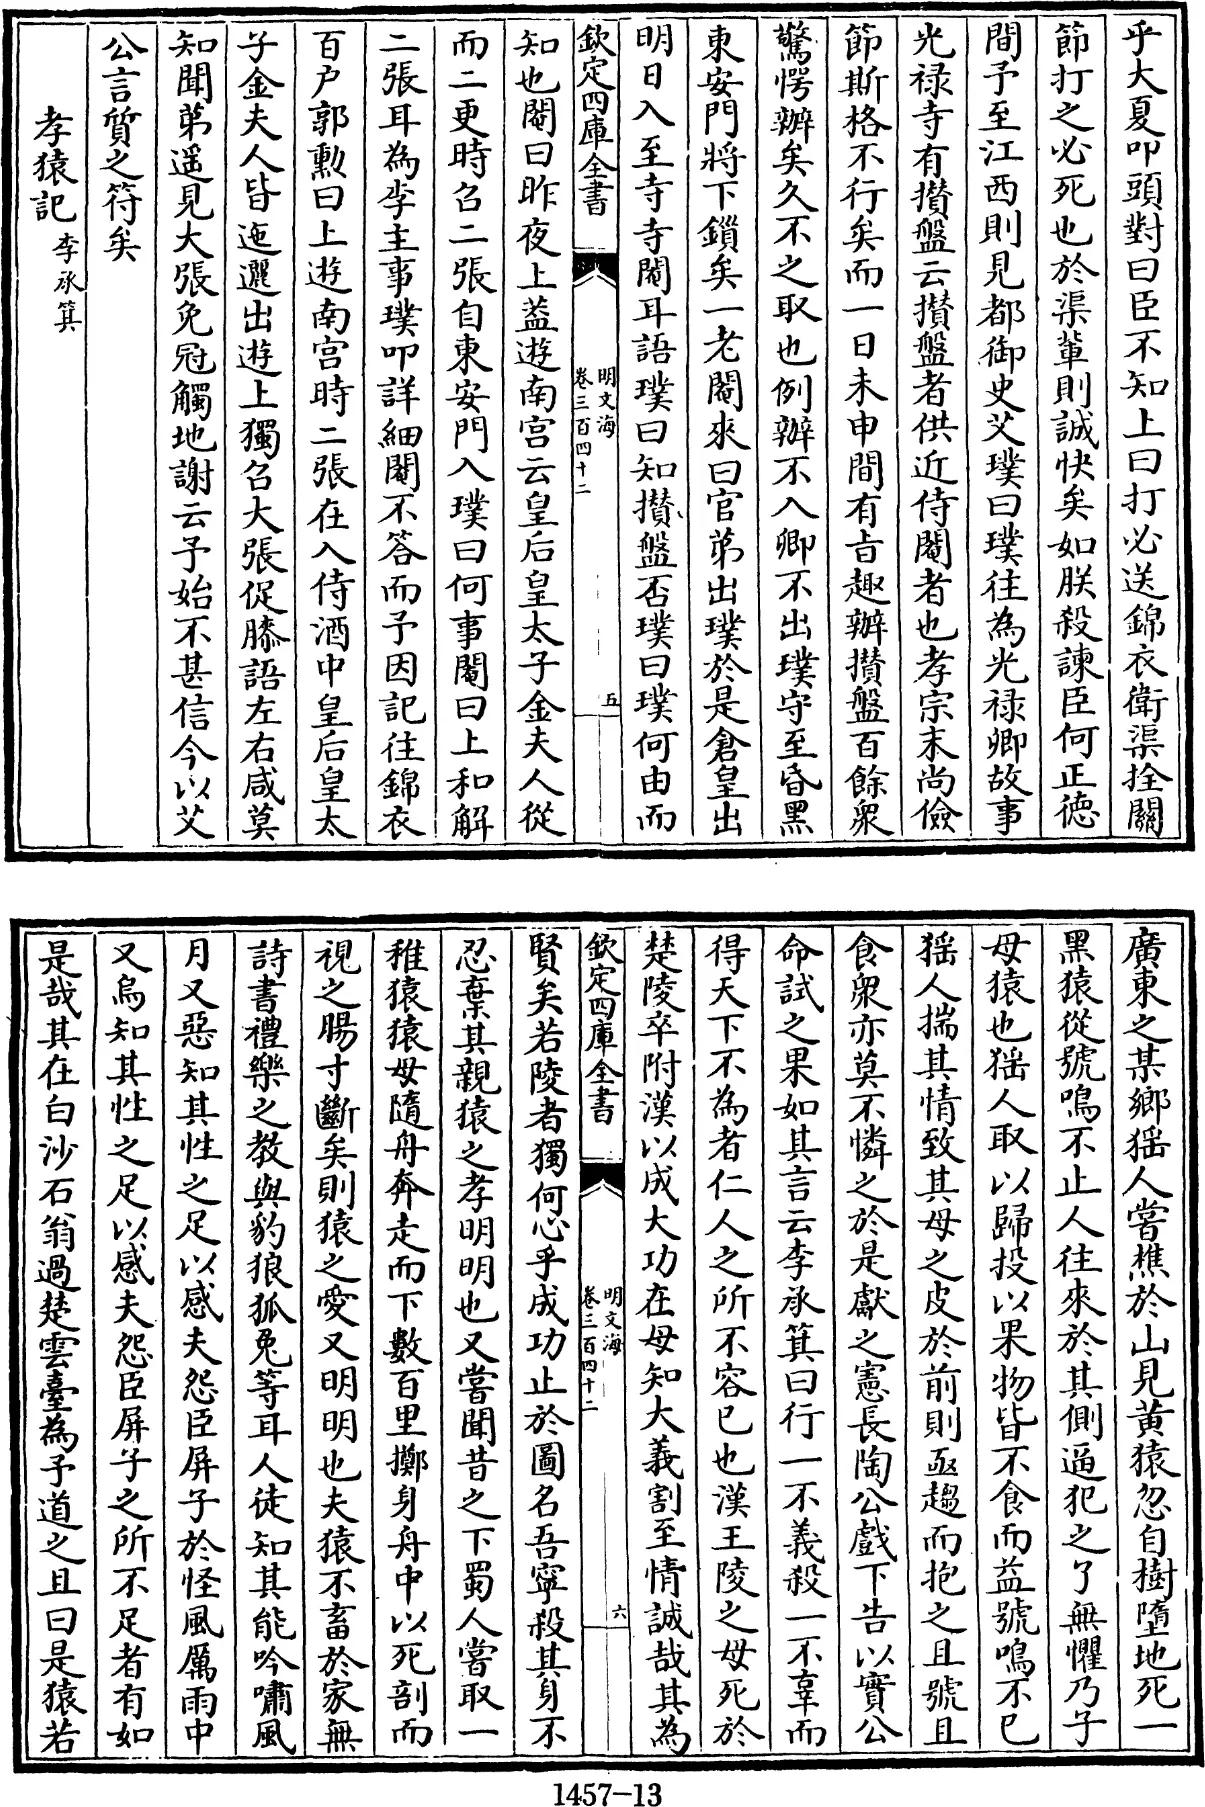 乎大夏叩頭對曰臣不知上曰打必送錦衣衛渠拴關
節打之必死也於渠輩則誠快矣如朕殺諫臣何正德
間予至江西則見都御史艾璞曰璞往為光祿卿故事
光祿寺有攢盤云攢盤者供近侍閹者也孝宗末尚儉
節斯格不行矣而一日未申間有旨趣辦攢盤百餘衆
驚愕辦矣久不之取也例辦不入卿不出璞守至昏黑
東安門將下鎖矣一老閹來曰官弟出璞於是倉皇出
明日入至寺寺閹耳語璞曰知攢盤否璞曰璞何由而
欽定四庫全書
明文海
卷三百四十二
五
知也閹曰昨夜上葢遊南宫云皇后皇太子金夫人從
而二更時召二張自東安門入璞曰何事閹曰上和解
二張耳為李主事璞叩詳細閹不答而予因記往錦衣
百户郭勳曰上遊南宫時二張在入侍酒中皇后皇太
子金夫人皆迤邐出遊上獨召大張促膝語左右咸莫
知聞弟遥見大張免冠觸地謝云予始不甚信今以艾
公言質之符矣
孝猿記 李承箕
廣東之某鄉猺人嘗樵於山見黄猿忽自樹墮地死一
黑猿從號鳴不止人往來於其側逼犯之了無懼乃子
母猿也猺人取以歸投以果物皆不食而益號鳴不已
猺人揣其情致其母之皮於前則亟趨而抱之且號且
食衆亦莫不憐之於是獻之憲長陶公戲下告以實公
命試之果如其言云李承箕曰行一不義殺一不辜而
得天下不為者仁人之所不容已也漢王陵之母死於
楚陵卒附漢以成大功在母知大義割至情誠哉其為
欽定四庫全書
明文海
卷三百四十二
六
賢矣若陵者獨何心乎成功止於圖名吾寧殺其身不
忍棄其親猿之孝明明也又嘗聞昔之下蜀人嘗取一
稚猿猿母隨舟奔走而下數百里擲身舟中以死剖而
視之腸寸斷矣則猿之愛又明明也夫猿不畜於家無
詩書禮樂之教與豹狼狐兎等耳人徒知其能吟嘯風
月又惡知其性之足以感夫怨臣屏子於怪風厲雨中
又烏知其性之足以感夫怨臣屏子之所不足者有如
是哉其在白沙石翁過楚雲臺為予道之且曰是猿若
1457-13